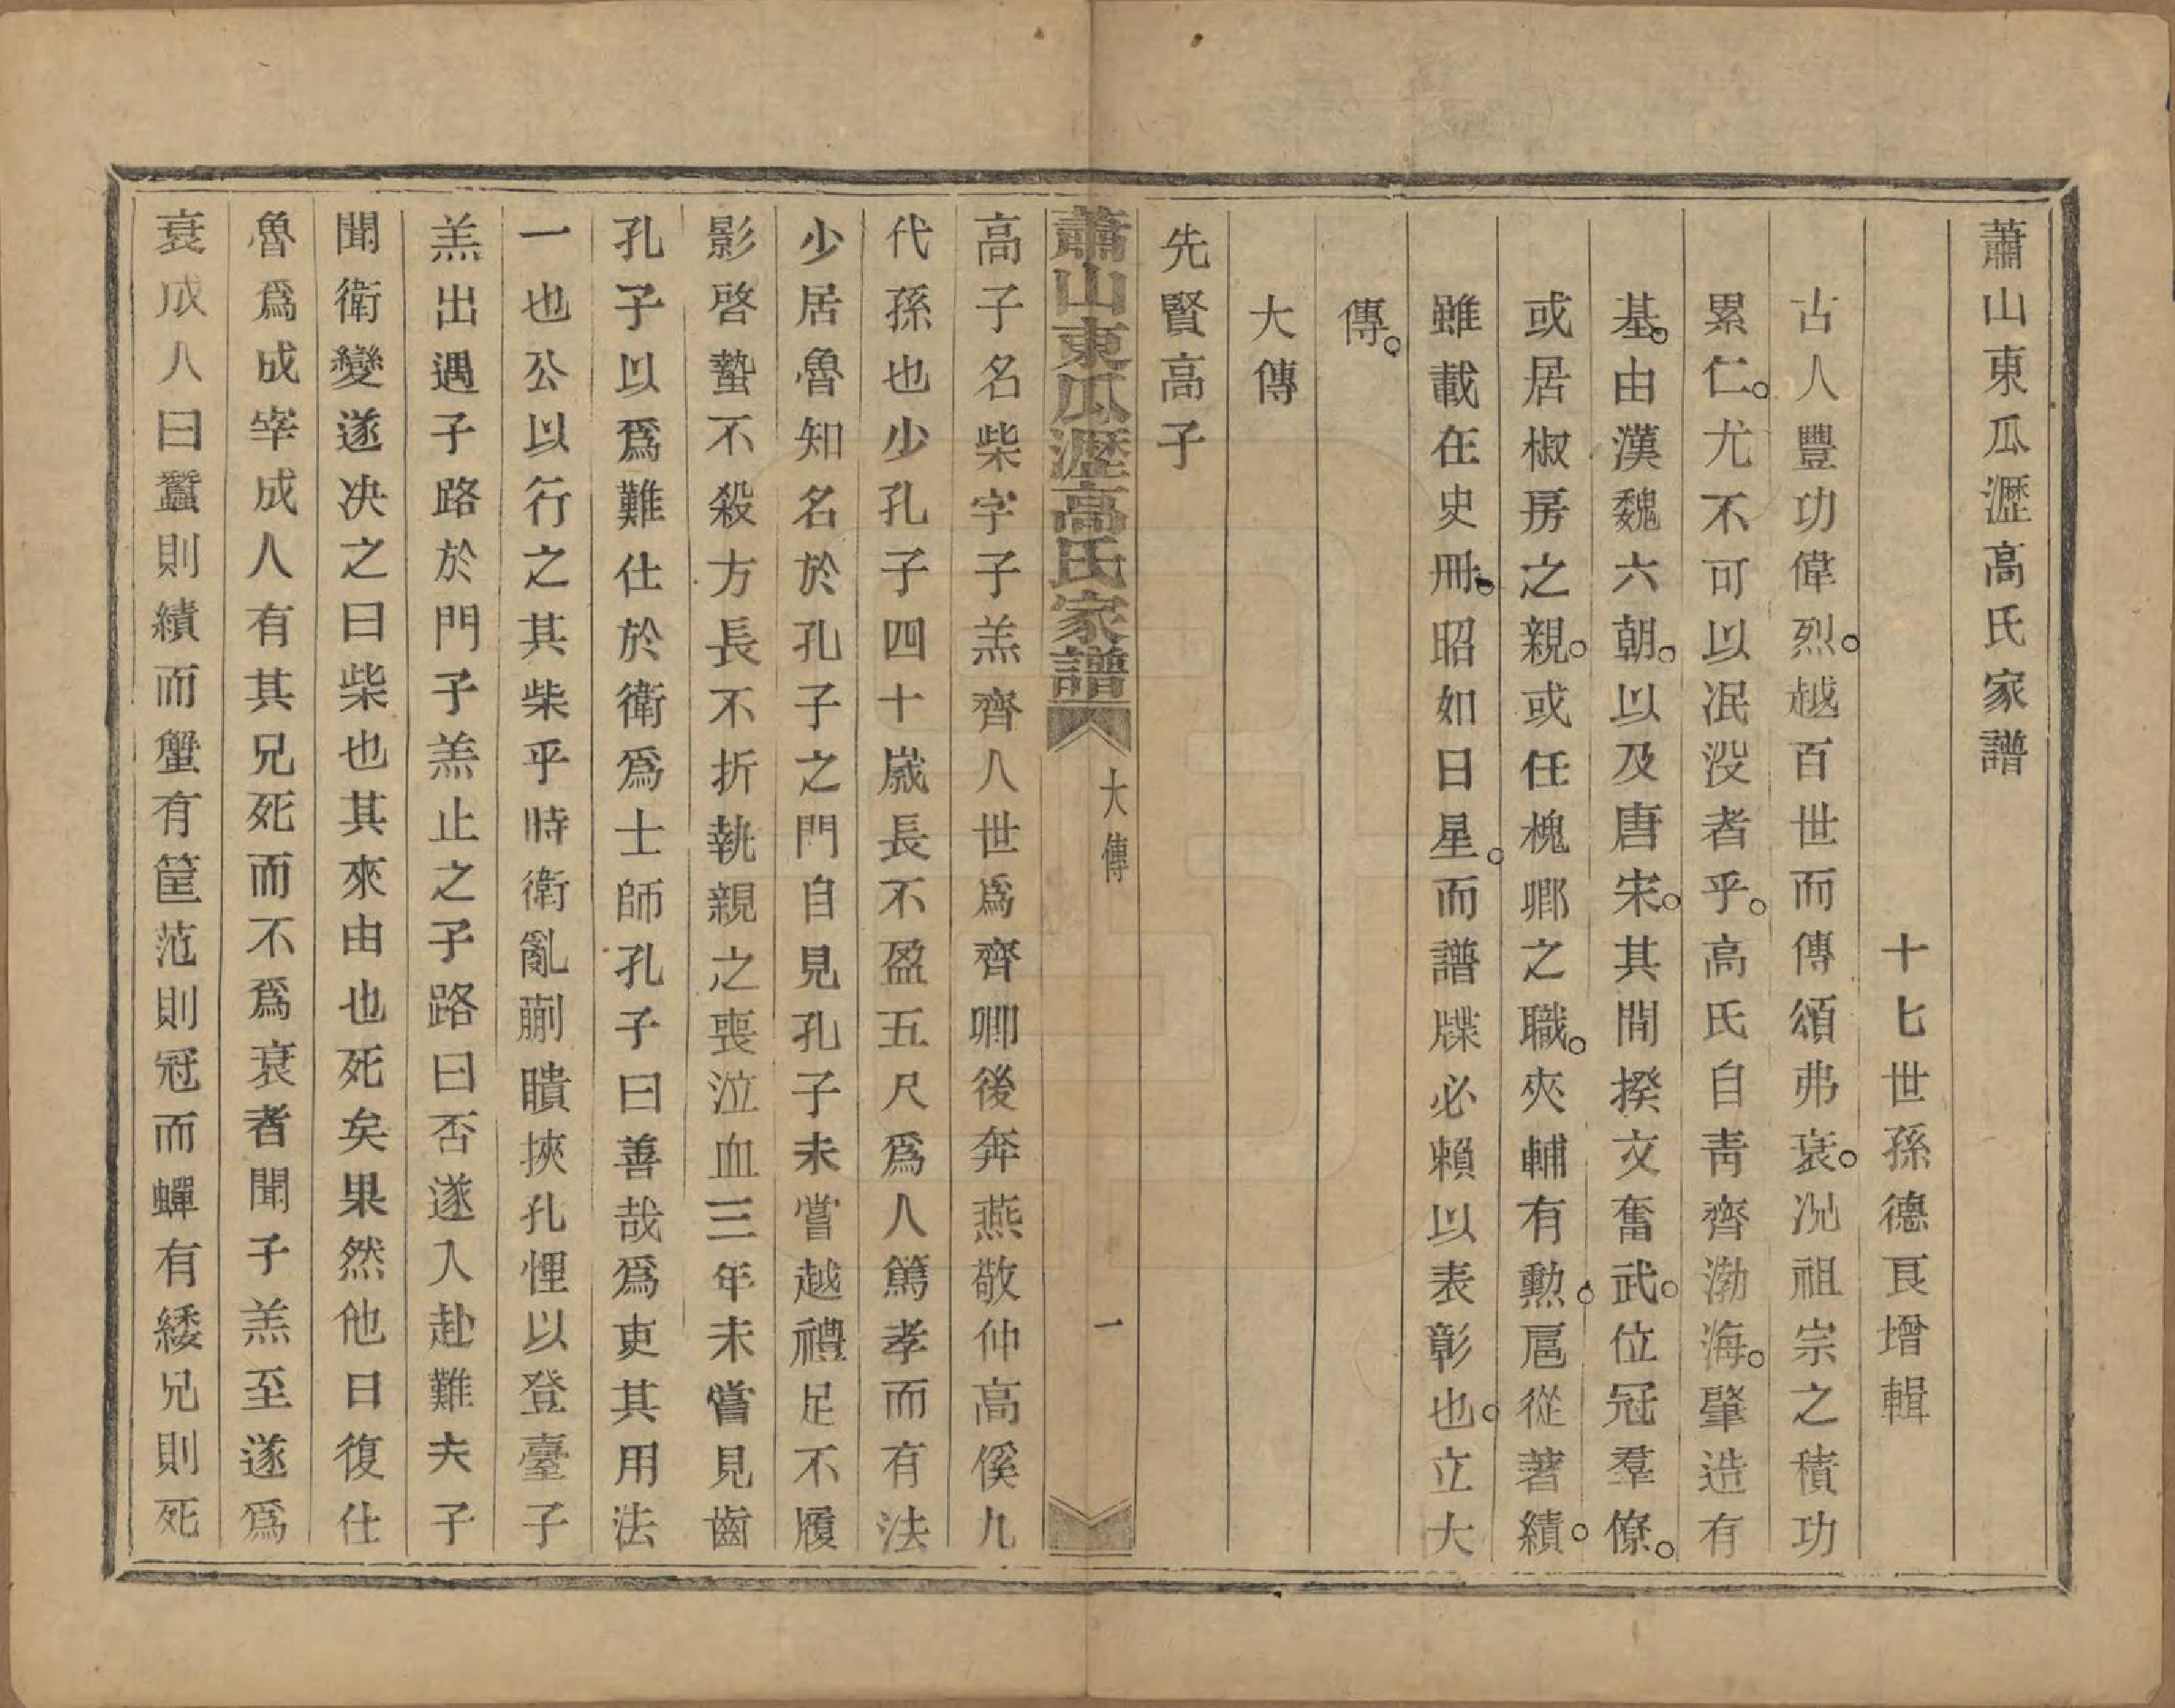 蕭山東瓜瀝高氏家譜
十七世孫德良增輯
古人豐功偉烈。越百世而傳頌弗衰。況祖宗之積功
累仁。尤不可以泯沒者乎。高氏自靑齊渤海。肇造有
基。由漢魏六朝。以及唐宋。其間揆文奮武。位冠羣僚。
或居椒房之親。或任槐卿之職。夾輔有勲。扈從著績。
雖載在史冊。昭如日星。而譜牒必賴以表彰也。立大
傳。
大傳
先賢高子
蕭山東瓜瀝高氏家譜 大傳 一
高子名柴字子羔齊人世爲齊卿後奔燕敬仲高傒九
代孫也少孔子四十歲長不盈五尺爲人篤孝而有法
少居魯知名於孔子之門自見孔子未嘗越禮足不履
影啓蟄不殺方長不折執親之喪泣血三年未嘗見齒
孔子以爲難仕於衛爲士師孔子曰善哉爲吏其用法
一也公以行之其柴乎時衛亂蒯聵挾孔悝以登臺子
羔出遇子路於門子羔止之子路曰否遂入赴難夫子
聞衛變遂决之曰柴也其來由也死矣果然他日復仕
魯爲成宰成人有其兄死而不爲衰者聞子羔至遂爲
衰成人曰蠶則績而蟹有筐范則冠而蟬有緌兄則死